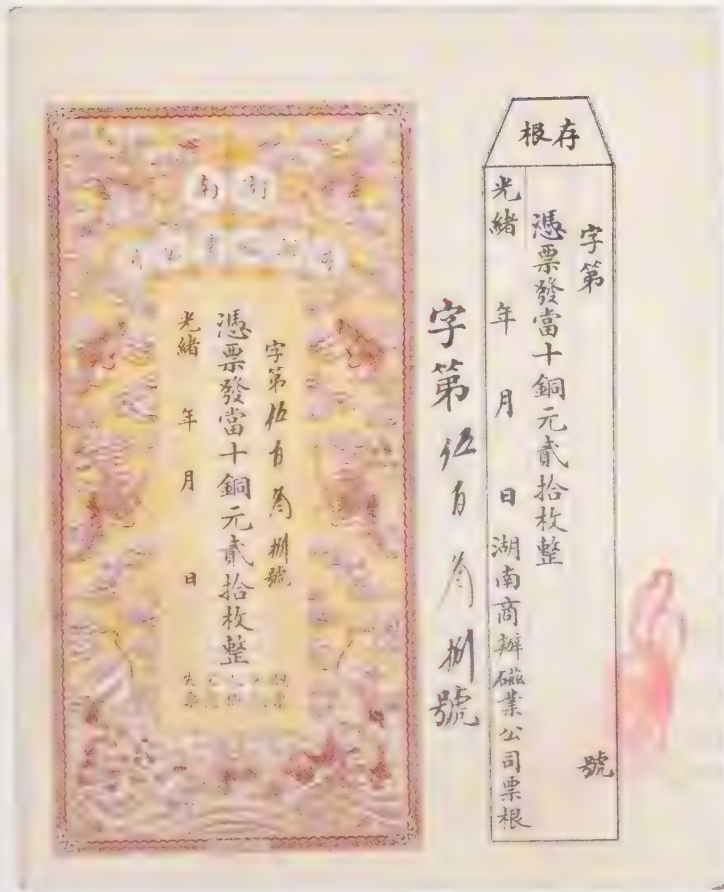 存根
字第 號
憑票發當十銅元貳拾枚整
光緒 年 月 日湖南商辦磁業公司票根
字第伍百捌號
南
字第伍百捌號
憑票發當十銅元貳拾枚整
光緒 年 月 日